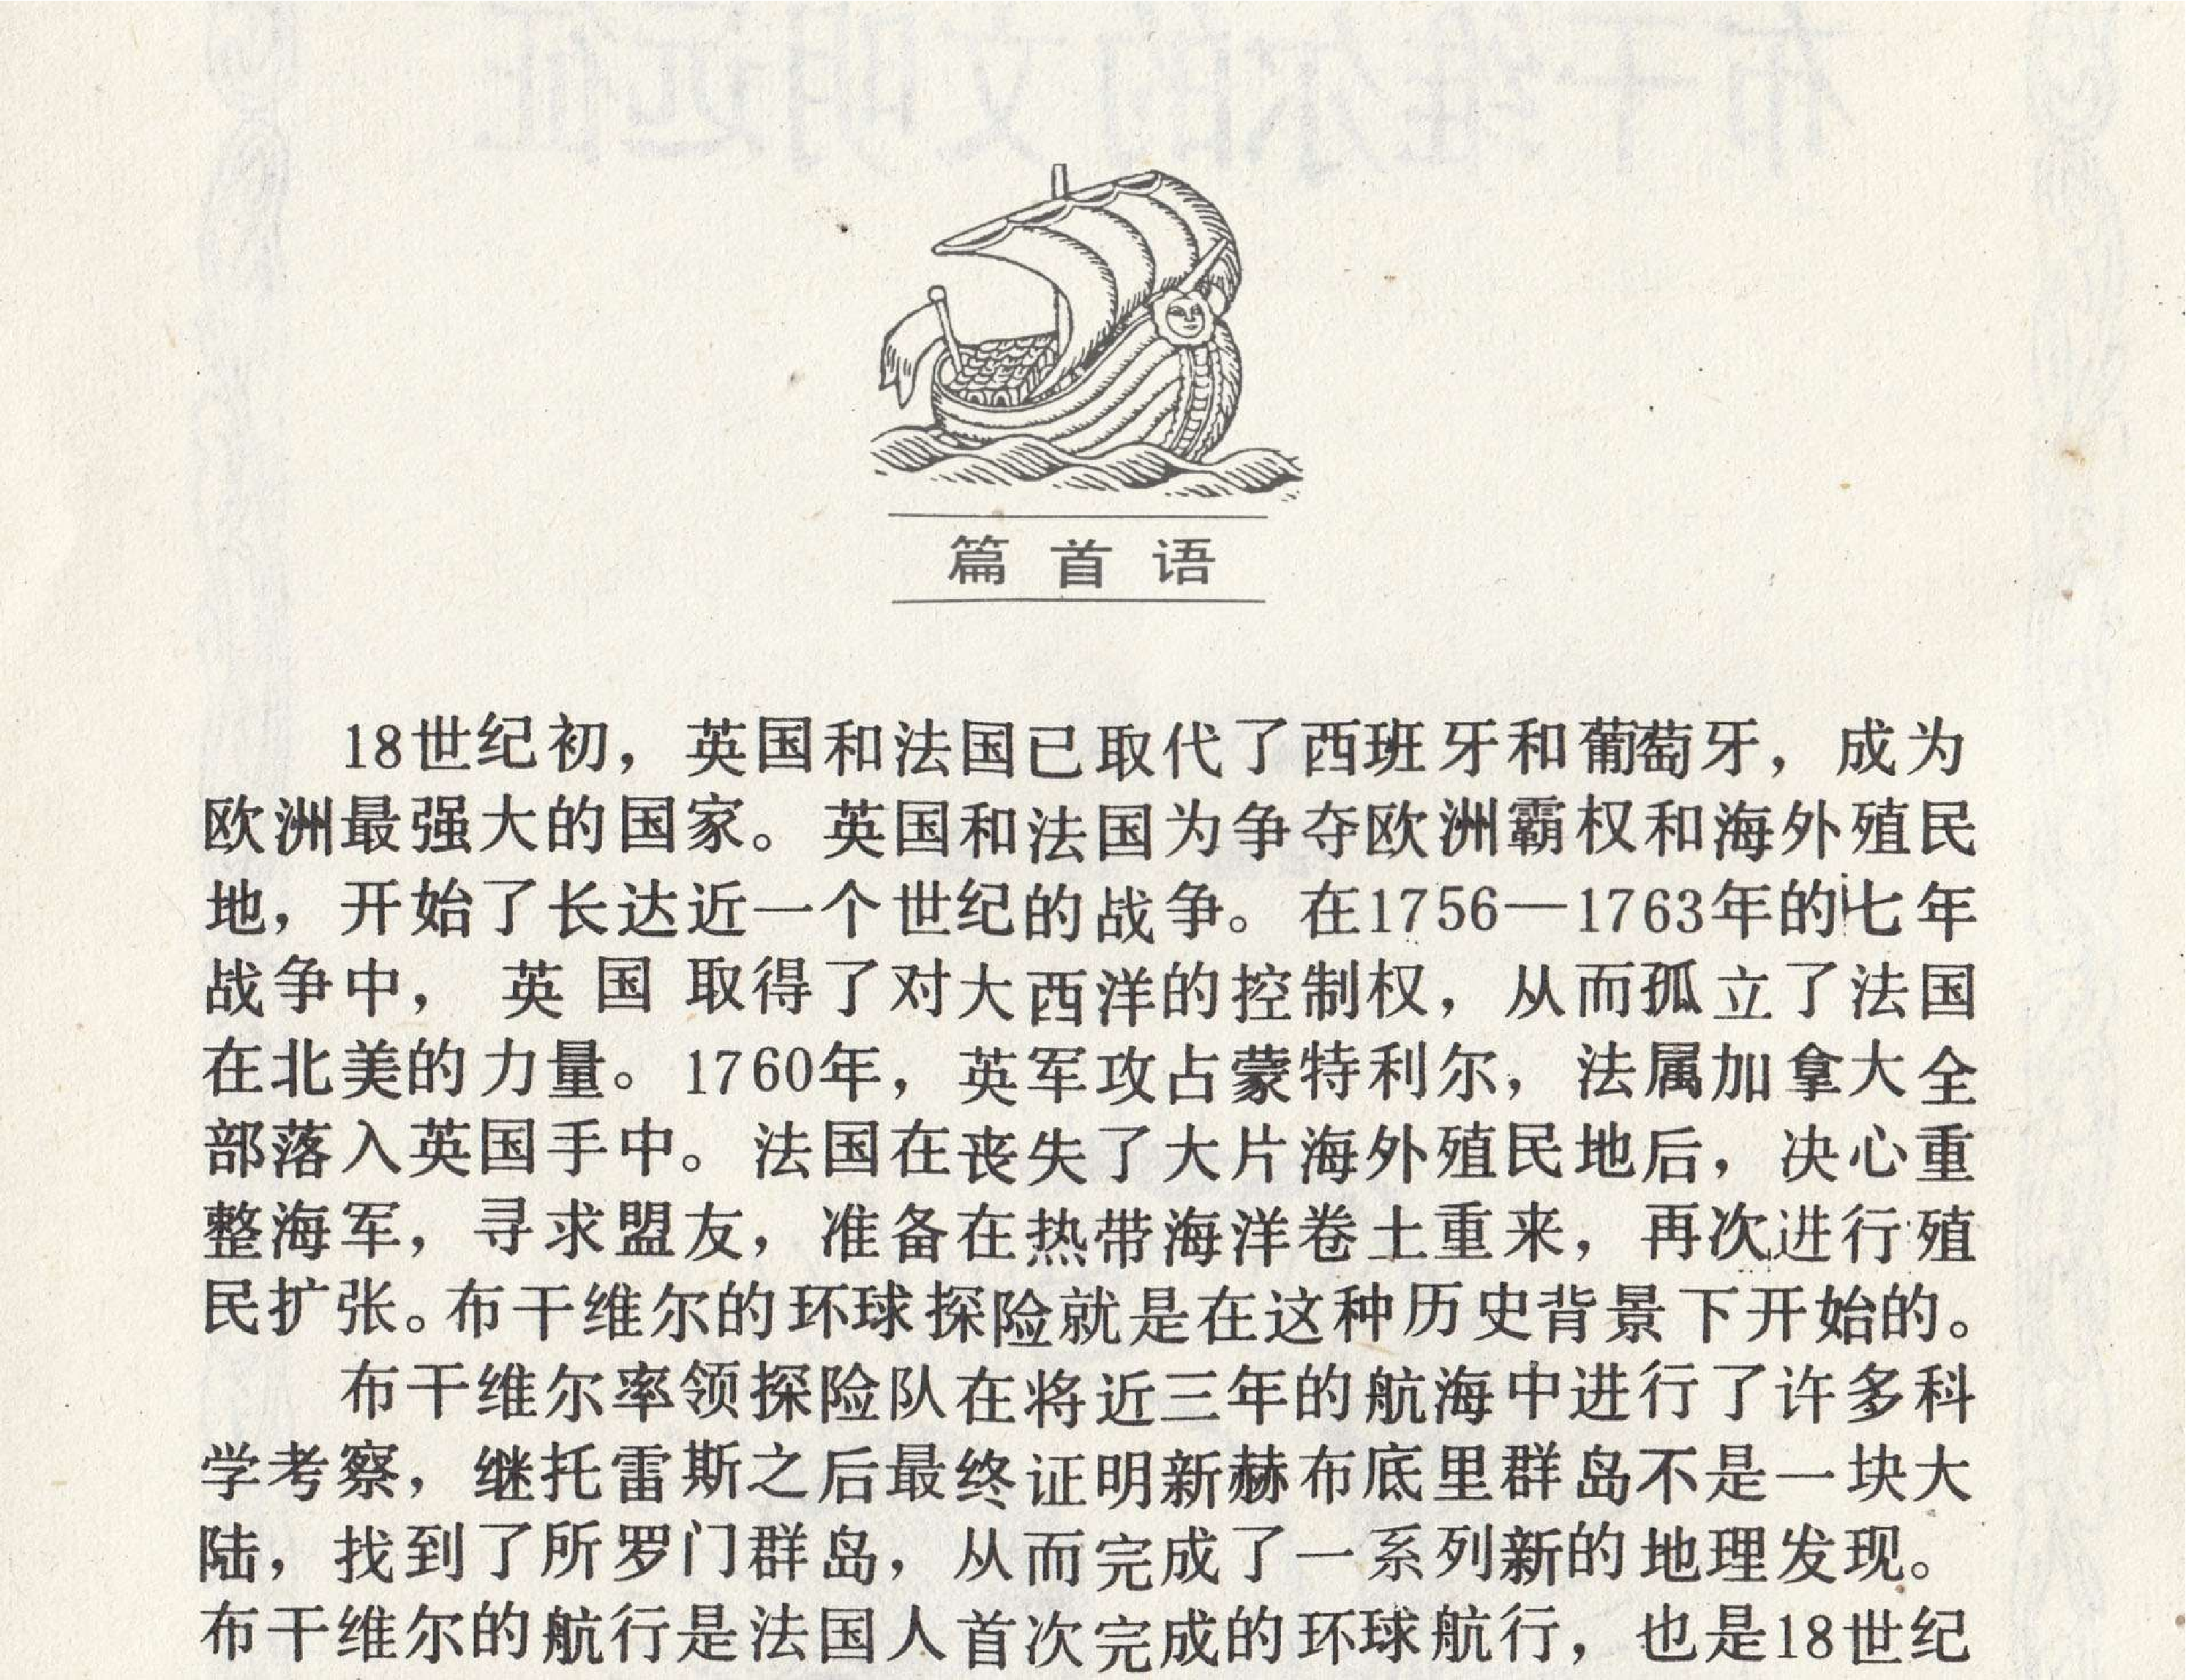 篇首语
18世纪初，英国和法国已取代了西班牙和葡萄牙，成为
欧洲最强大的国家。英国和法国为争夺欧洲霸权和海外殖民
地，开始了长达近一个世纪的战争。在1756—1763年的七年
战争中，英国取得了对大西洋的控制权，从而孤立了法国
在北美的力量。1760年，英军攻占蒙特利尔，法属加拿大全
部落入英国手中。法国在丧失了大片海外殖民地后，决心重
整海军，寻求盟友，准备在热带海洋卷土重来，再次进行殖
民扩张。布干维尔的环球探险就是在这种历史背景下开始的。
布干维尔率领探险队在将近三年的航海中进行了许多科
学考察，继托雷斯之后最终证明新赫布底里群岛不是一块大
陆，找到了所罗门群岛，从而完成了一系列新的地理发现。
布干维尔的航行是法国人首次完成的环球航行，也是18世纪